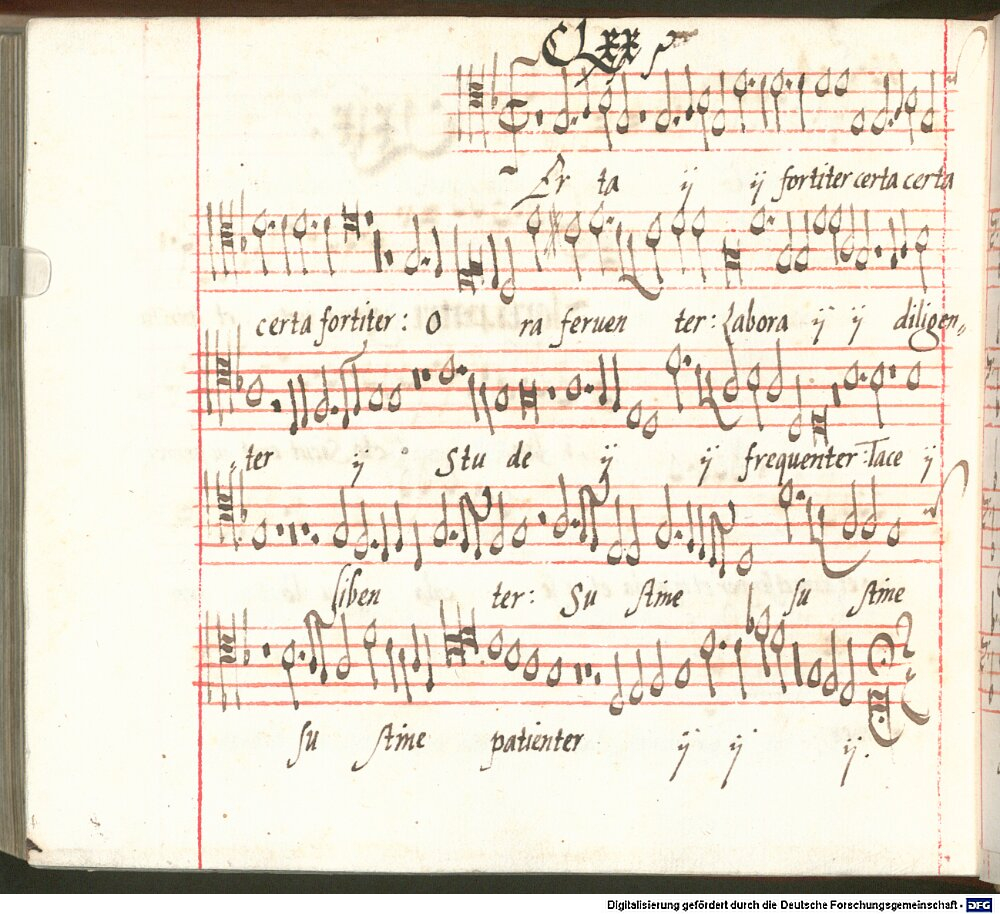 CLxx
Er ta ij ij fortiter certa certa
certa fortiter: O ra feruen ter: labora ij ij diligen„
„ter ij Stu de ij ij frequenter: Tace ij
liben ter: Su stine su stine
su stine patienter ij ij ij.
Digitalisierung gefördert durch die Deutsche Forschungsgemeinschaft - DFG